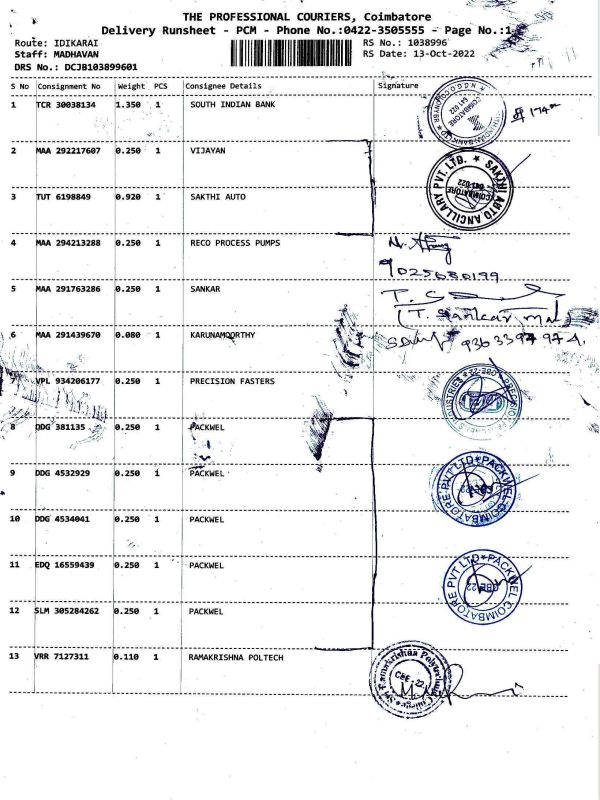 THE PROFESSIONAL COURIERS, Coimbatore
Delivery Runsheet - PCM - Phone No.:0422-3505555 - Page No.:1
Route: IDIKARAI
RS No.: 1038996
Staff: MADHAVAN
RS Date: 13-Oct-2022
DRS No.: DCJB103899601
S No Consignment No Weight PCS Consignee Details Signature
1 TCR 30038134 1.350 1 SOUTH INDIAN BANK
COIMBATORE
641 022
2 MAA 292217607 0.250 1 VIJAYAN
SAKTHI AUTO ANCILLARY PVT. LTD.
COIMBATORE
641-022
3 TUT 6198849 0.920 1 SAKTHI AUTO
4 MAA 294213288 0.250 1 RECO PROCESS PUMPS
5 MAA 291763286 0.250 1 SANKAR
6 MAA 291439670 0.080 1 KARUNAMOORTHY
7 VPL 934206177 0.250 1 PRECISION FASTERS
8 DDG 381135 0.250 1 PACKWEL
9 DDG 4532929 0.250 1 PACKWEL
PACKWEL COIMBATORE PVT LTD
10 DDG 4534041 0.250 1 PACKWEL
11 EDQ 16559439 0.250 1 PACKWEL
PACKWEL COIMBATORE PVT LTD
12 SLM 305284262 0.250 1 PACKWEL
13 VRR 7127311 0.110 1 RAMAKRISHNA POLTECH
CBE-22